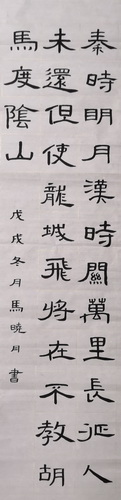 秦時明月漢時關萬里長征人
未還但使龍城飛將在不教胡
馬度陰山
戊戌冬月馬曉月書